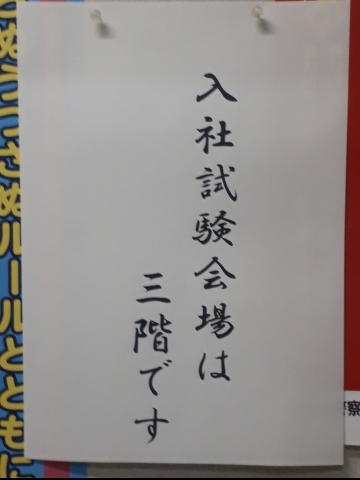 入社試験会場は
三階です
ぬうつさぬルールとともに
警察